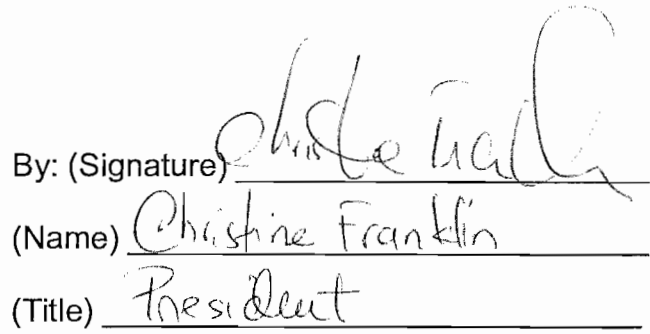 By: (Signature) Christine Franklin
(Name) Christine Franklin
(Title) President